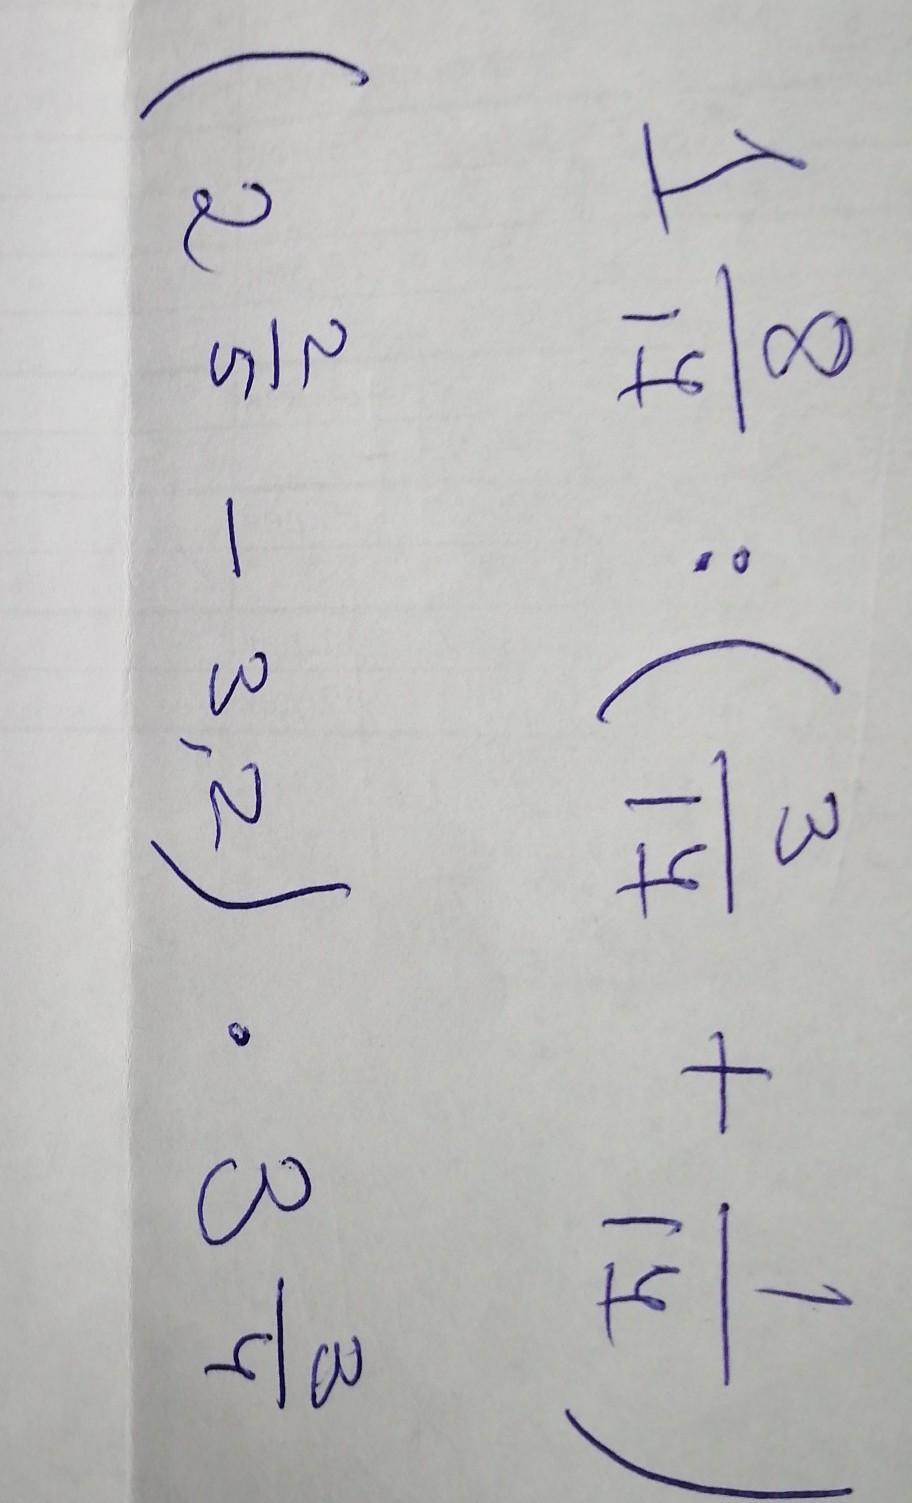 1 8/14 : (3/14 + 1/14)
(2 2/5 - 3,2) · 3 3/4